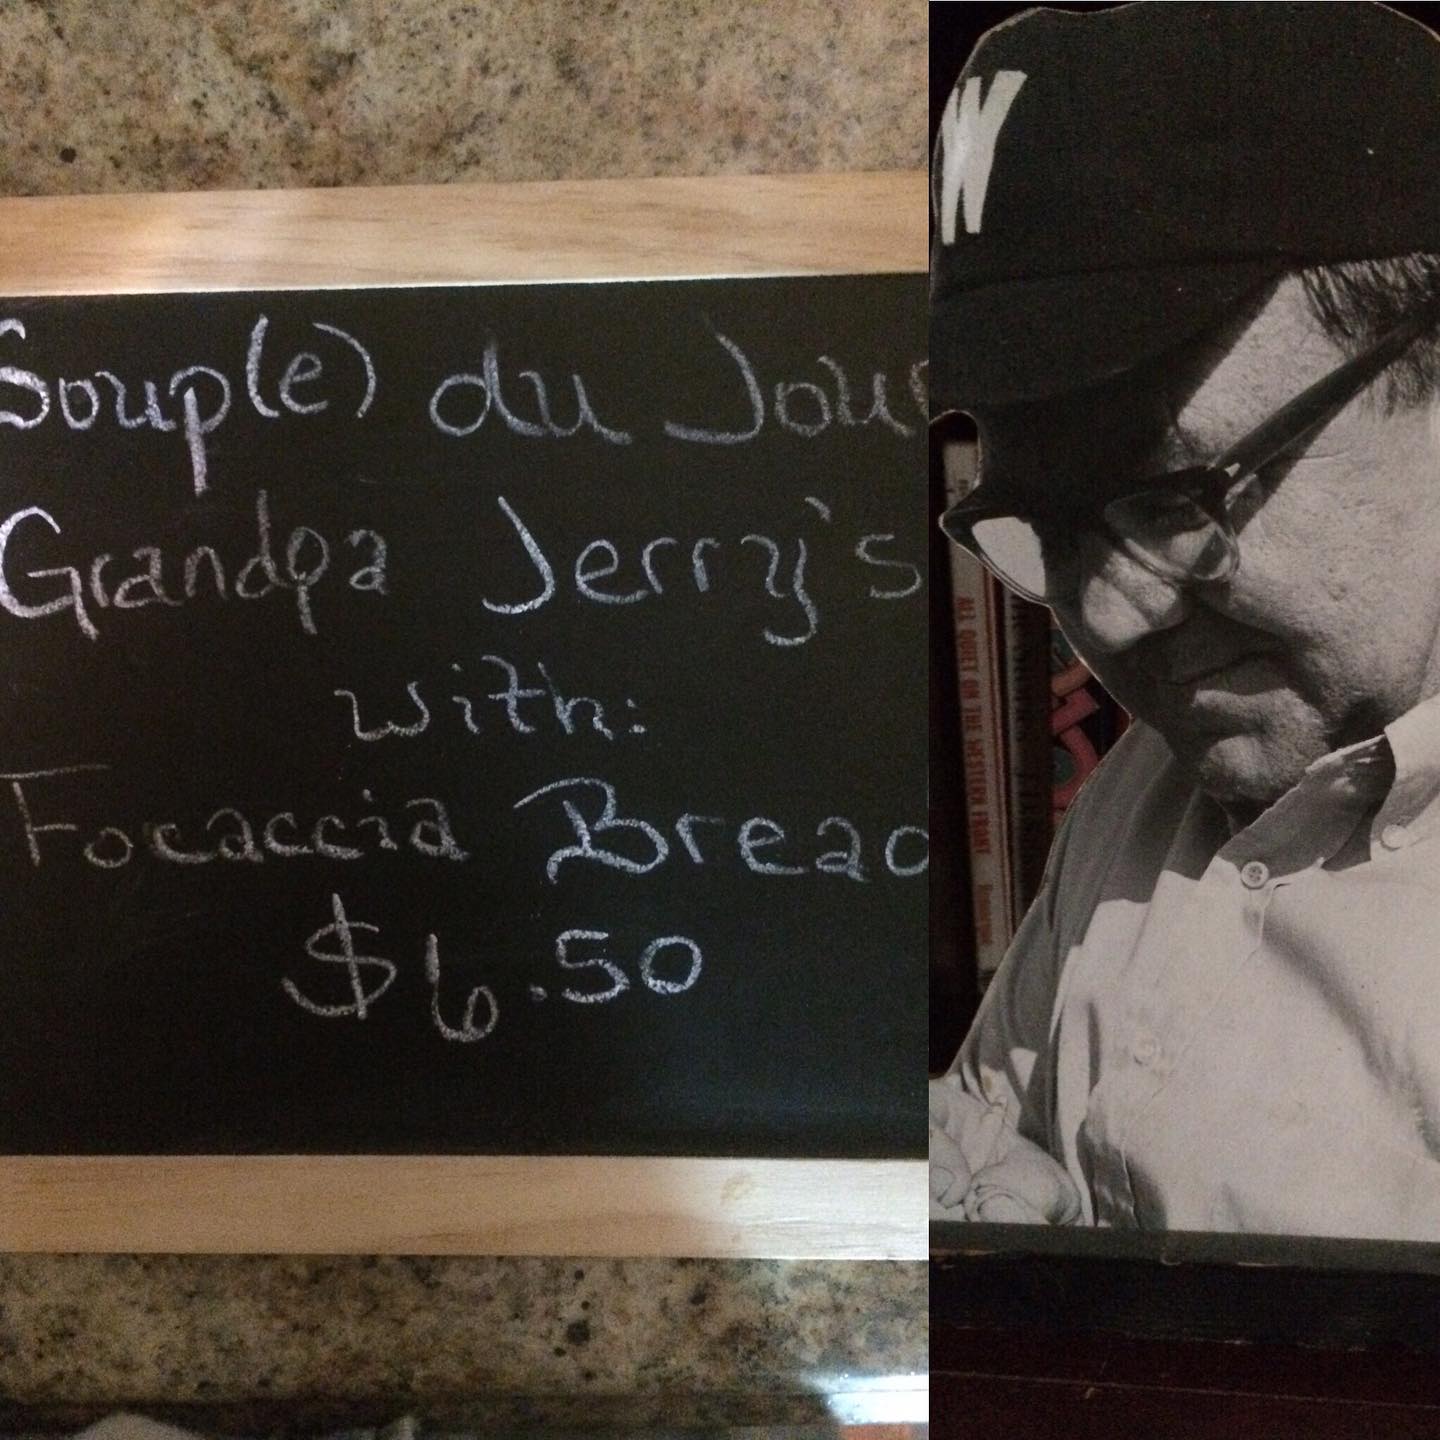 Soup(e) du Jour
Grandpa Jerry's
with:
Focaccia Bread
$6.50
W
ALL QUIET ON THE WESTERN FRONT